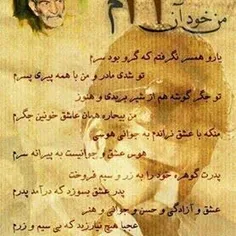 من خود آن ۱۳ م
یارو همسر نگرفتم که گرو بود سرم
تو شدی مادر و من با همه پیری پسرم
تو جگر گوشه هم از شیر بریدی و هنوز
من بیچاره همان عاشق خونین جگرم
منکه با عشق نراندم به جوانی هوسی
هوس عشق و جوانیست به پیرانه سرم
پدرت گوهر خود را به زر و سیم فروخت
پدر عشق بسوزد که درآمد پدرم
عشق و آزادگی و حسن و جوانی و هنر
عجبا هیچ نیارزید که بی سیم و زرم